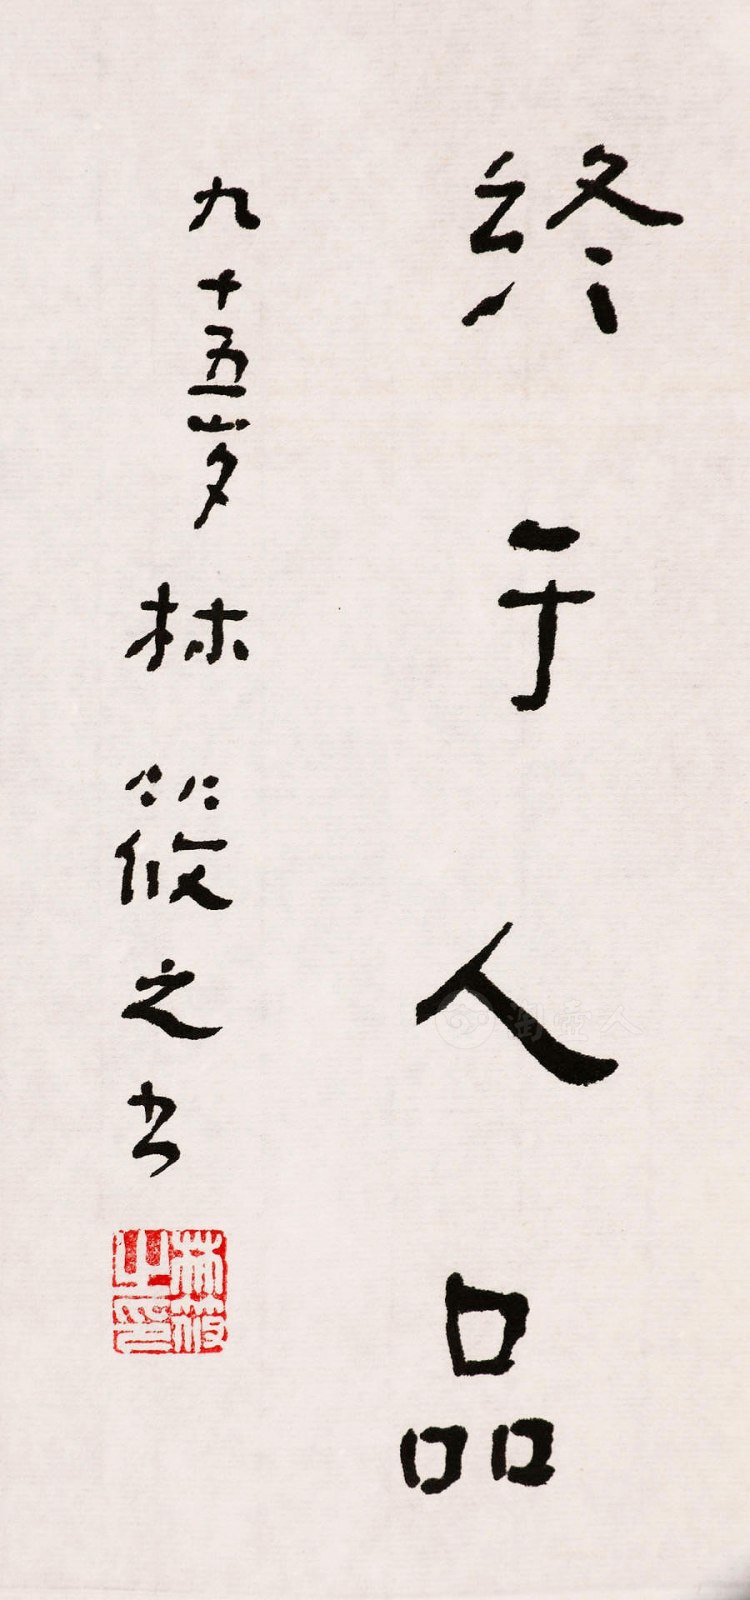 终于人品
九十五岁林筱之书
林筱之印